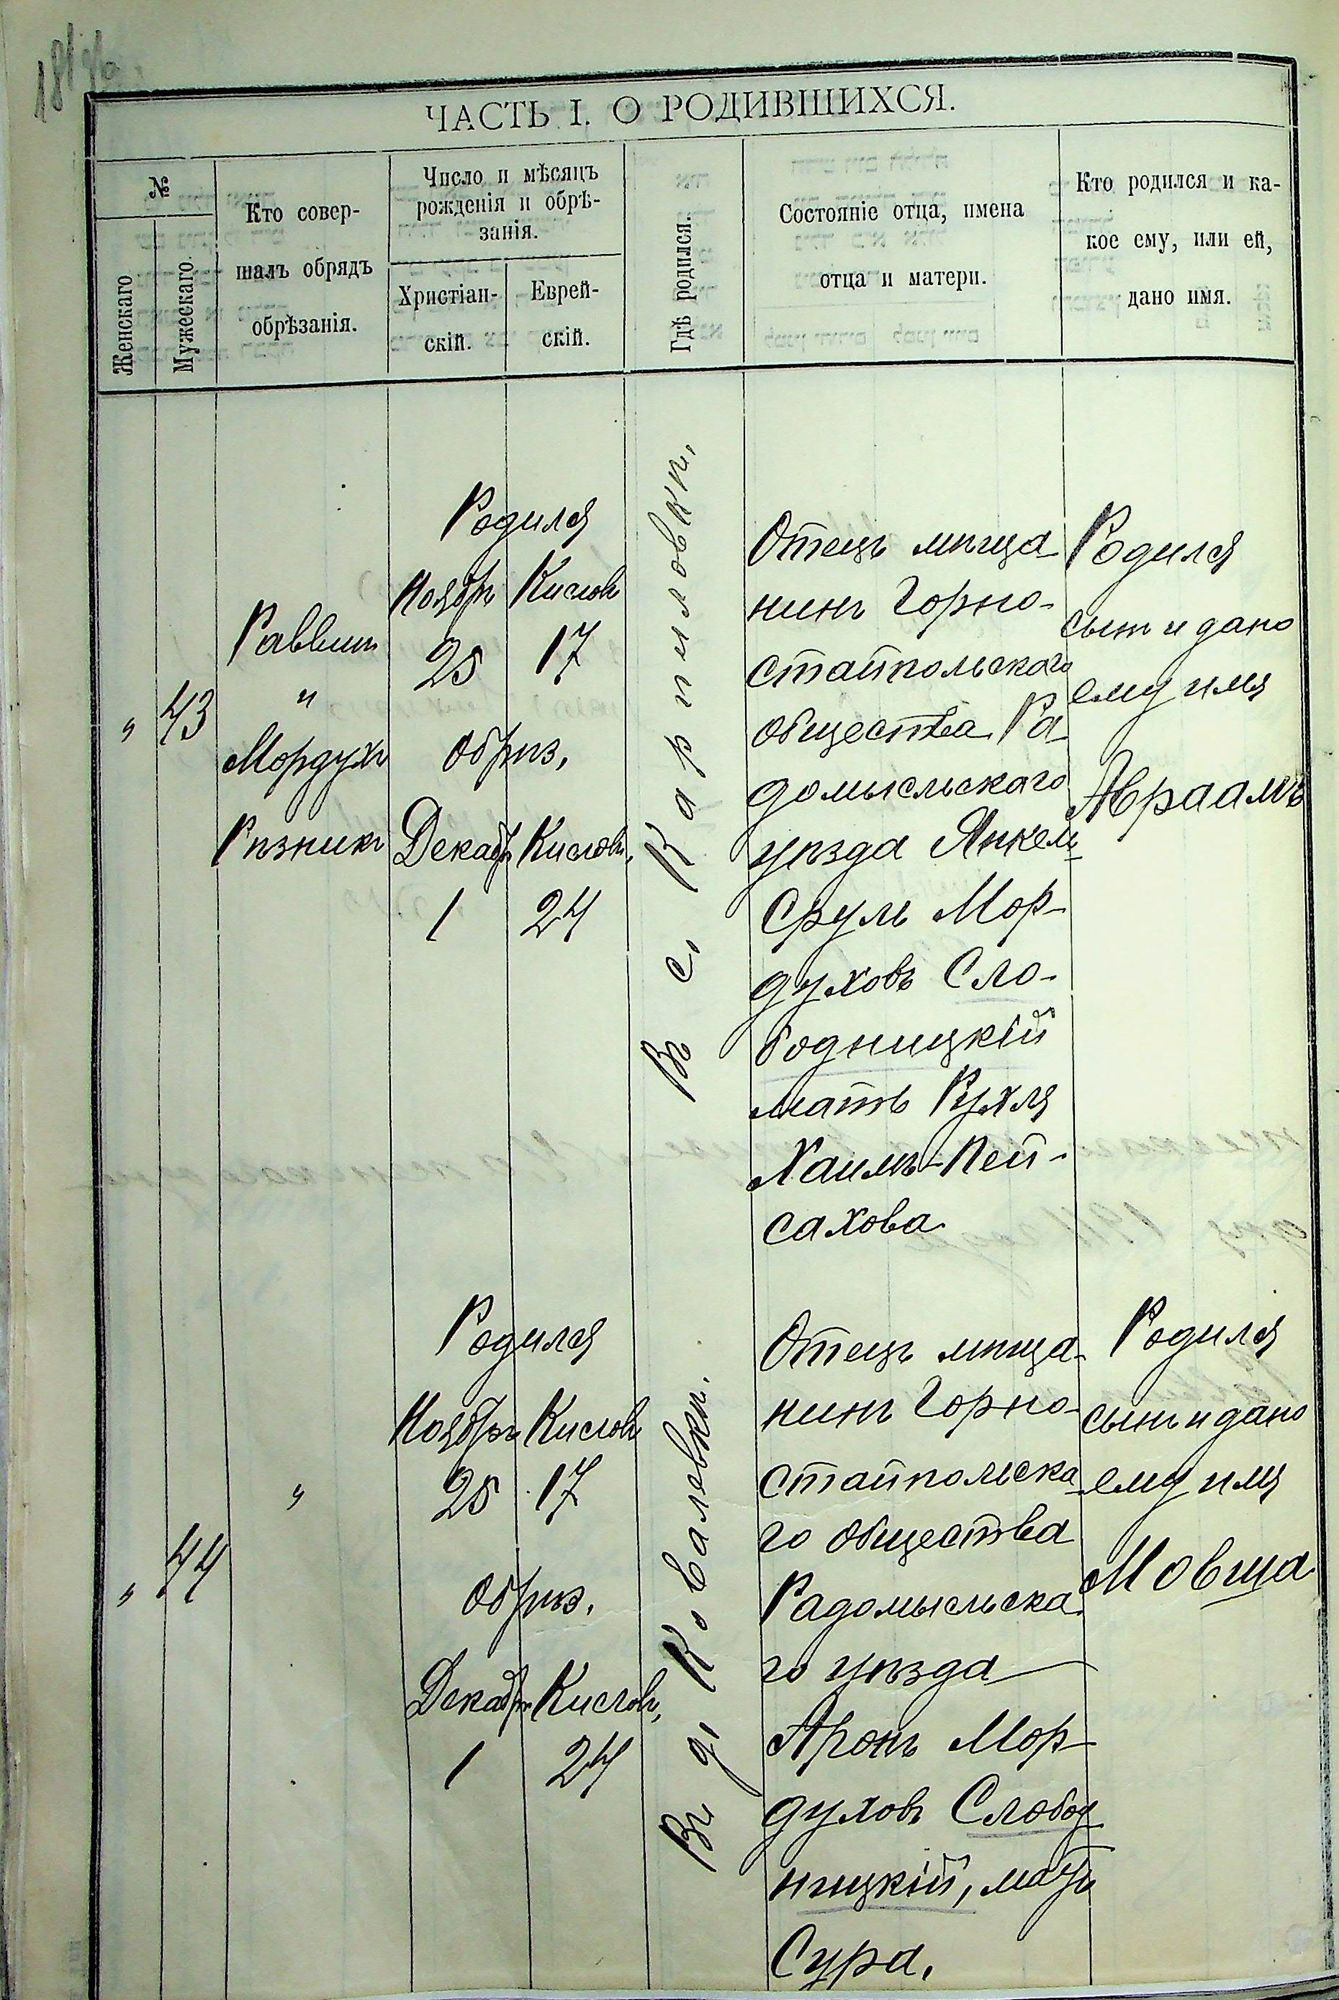 ЧАСТЬ I. О РОДИВШИХСЯ.
№
Женскаго
Мужескаго.
Кто совер-
шалъ обрядъ
обрѣзанія.
Число и мѣсяцъ
рожденія и обрѣ-
занія.
Христіан-
скій.
Еврей-
скій.
Гдѣ родился.
Состояніе отца, имена
отца и матери.
Кто родился и ка-
кое ему, или ей,
дано имя.
„ 43
Раввинъ
„
Мордухъ
Рѣзникъ
Родился
Ноябрь Кислевъ
25 17
обрѣз.
Декабр Кислевъ.
1 24
Въ с. Карпиловкѣ.
Отецъ мѣща-
нинъ Горно-
стайпольскаго
общества Ра-
домысльскаго
уѣзда Янкель-
Сруль Мор-
духовъ Сло-
бодницкій
мать Рухля
Хаимъ-Пей-
сахова
Родился
сынъ и дано
ему имя
Авраамъ
„ 44
„
Родился
Ноябрь Кислевъ
25 17
обрѣз.
Декабр Кислевъ.
1 24
Въ д. Ковалевкѣ.
Отецъ мѣща-
нинъ Горно-
стайпольска-
го общества
Радомысльска-
го уѣзда
Аронъ Мор-
духовъ Слобод-
ницкій, мать
Сура.
Родился
сынъ и дано
ему имя
Мовша